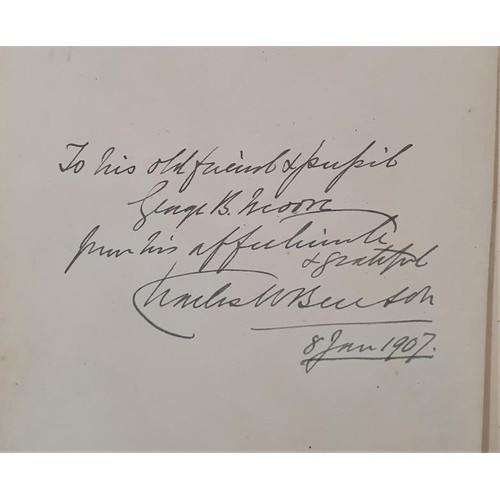 To his old friend & pupil
George B. Moore
from his affectionate
& grateful
Charles W Benson
8 Jan 1907.